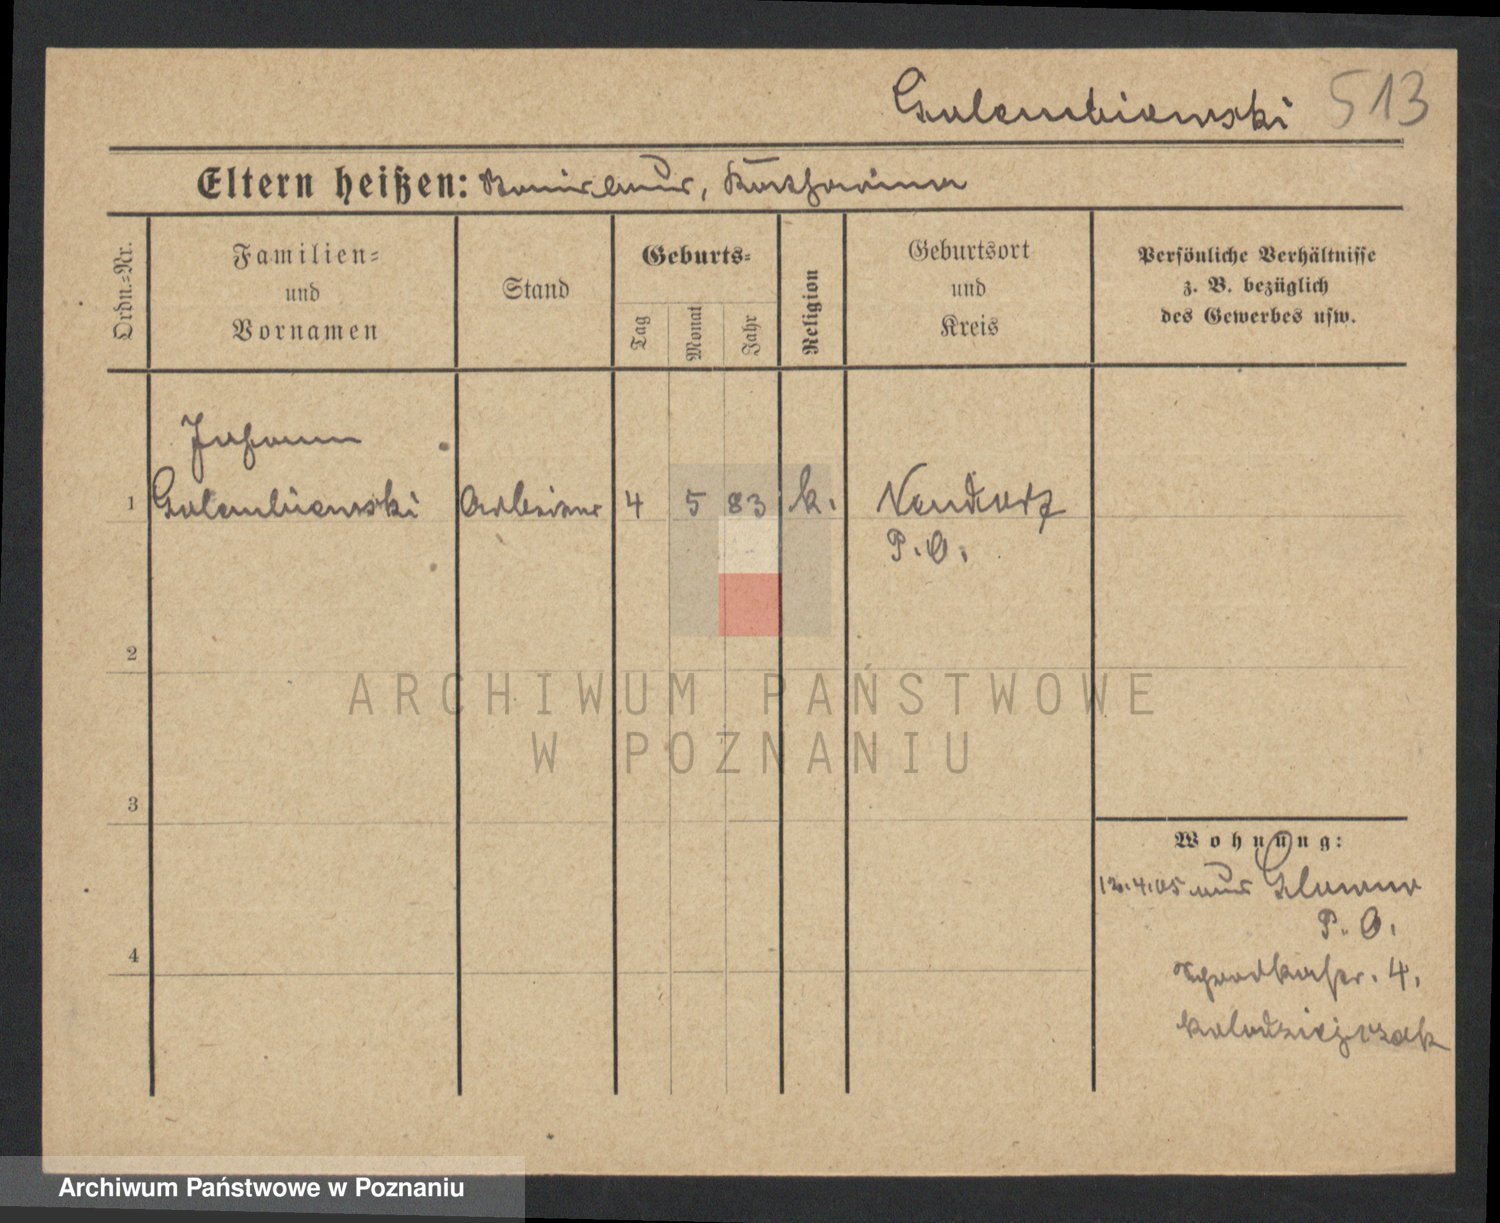 Golembiewski 513
Eltern heißen: Stanislaus, Katharina
Ordn.-Nr.
Familien-
und
Vornamen
Stand
Geburts-
Tag
Monat
Jahr
Religion
Geburtsort
und
Kreis
Persönliche Verhältnisse
z. B. bezüglich
des Gewerbes usw.
Johann
1 Golembiewski Arbeiter 4 5 83 k. Neudorf
P. O.
2
ARCHIWUM PAŃSTWOWE
W POZNANIU
3
4
Wohnung:
12.4.05 aus Glowno
P. O.
4.
Kolodziejczak
Archiwum Państwowe w Poznaniu